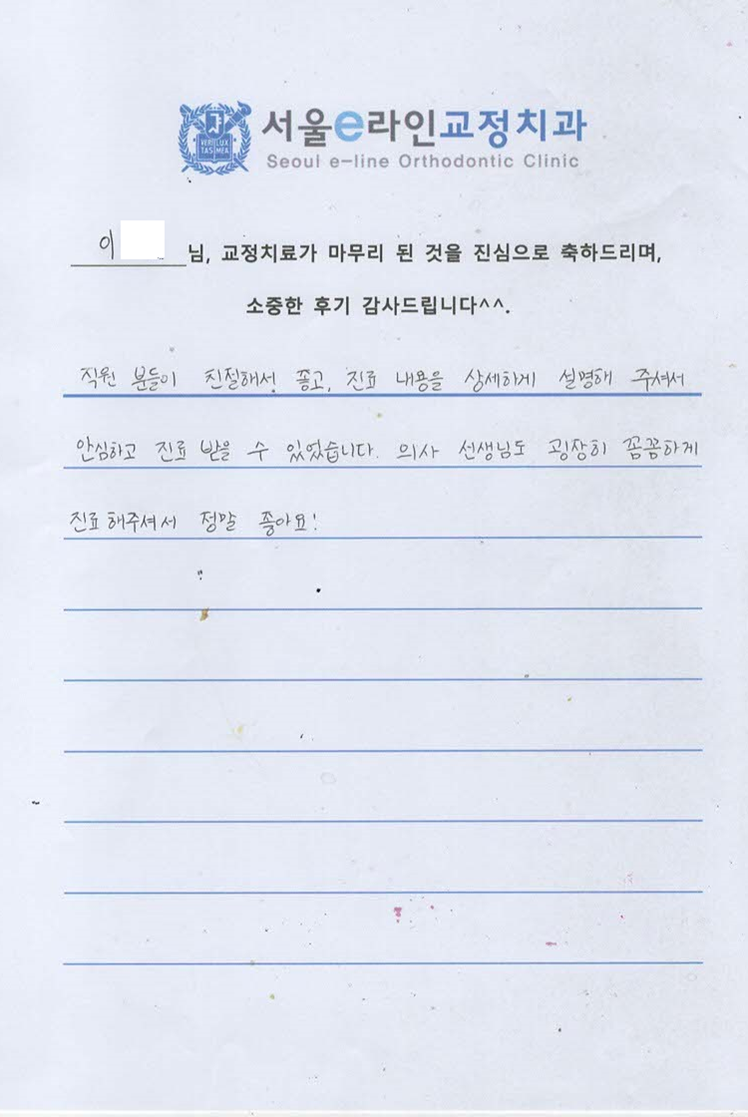 서울e라인교정치과
Seoul e-line Orthodontic Clinic
VERI LUX
TAS MEA
이 님, 교정치료가 마무리 된 것을 진심으로 축하드리며,
소중한 후기 감사드립니다^^.
직원 분들이 친절해서 좋고, 진료 내용을 상세하게 설명해 주셔서
안심하고 진료 받을 수 있었습니다. 의사 선생님도 굉장히 꼼꼼하게
진료해주셔서 정말 좋아요!